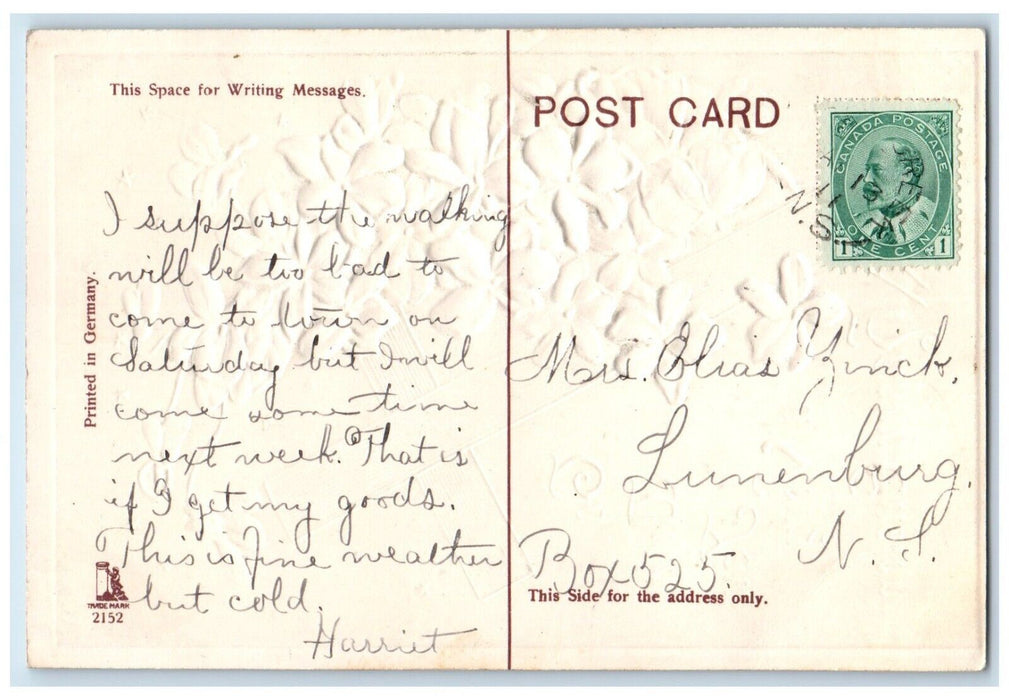 This Space for Writing Messages.
I suppose the walking
will be too bad to
come to town on
Saturday but I will
come some time
next week. That is
if I get my goods.
This is fine weather
but cold.
Harriet
Printed in Germany.
TRADE MARK
2152
POST CARD
CANADA POSTAGE
ONE CENT
1 1
N.S.
Mrs. Elias Zinck,
Lunenburg,
N. S.
Box 525.
This Side for the address only.